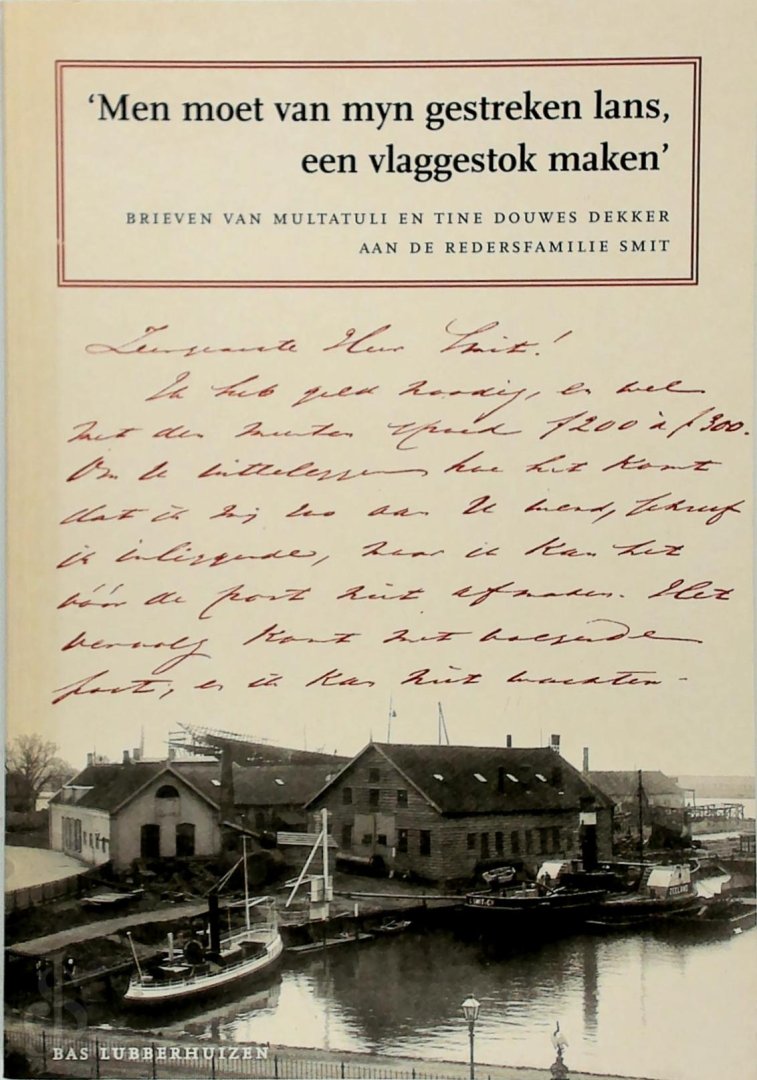 ‘Men moet van myn gestreken lans,
een vlaggestok maken’
BRIEVEN VAN MULTATULI EN TINE DOUWES DEKKER
AAN DE REDERSFAMILIE SMIT
Zeergeëerde Heer Smit!
Ik heb geld noodig, en wel
met den meesten spoed f200 à f300.
Om U uitteleggen hoe het komt
dat ik mij tot U wend, schreef
ik inliggende, maar ik kan het
vóór de post niet afmaken. Het
vervolg komt met volgende
post, en ik kan niet wachten -
L SMIT & Co
ZEELAND
BAS LUBBERHUIZEN